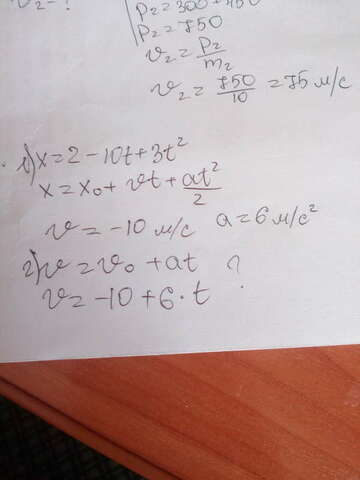 v₂-?
p₂=300+450
p₂=750
v₂=p₂/m₂
v₂=750/10=75 м/с
1) x=2-10t+3t²
x=x₀+vt+at²/2
v=-10 м/с a=6 м/с²
2) v=v₀+at ?
v=-10+6·t